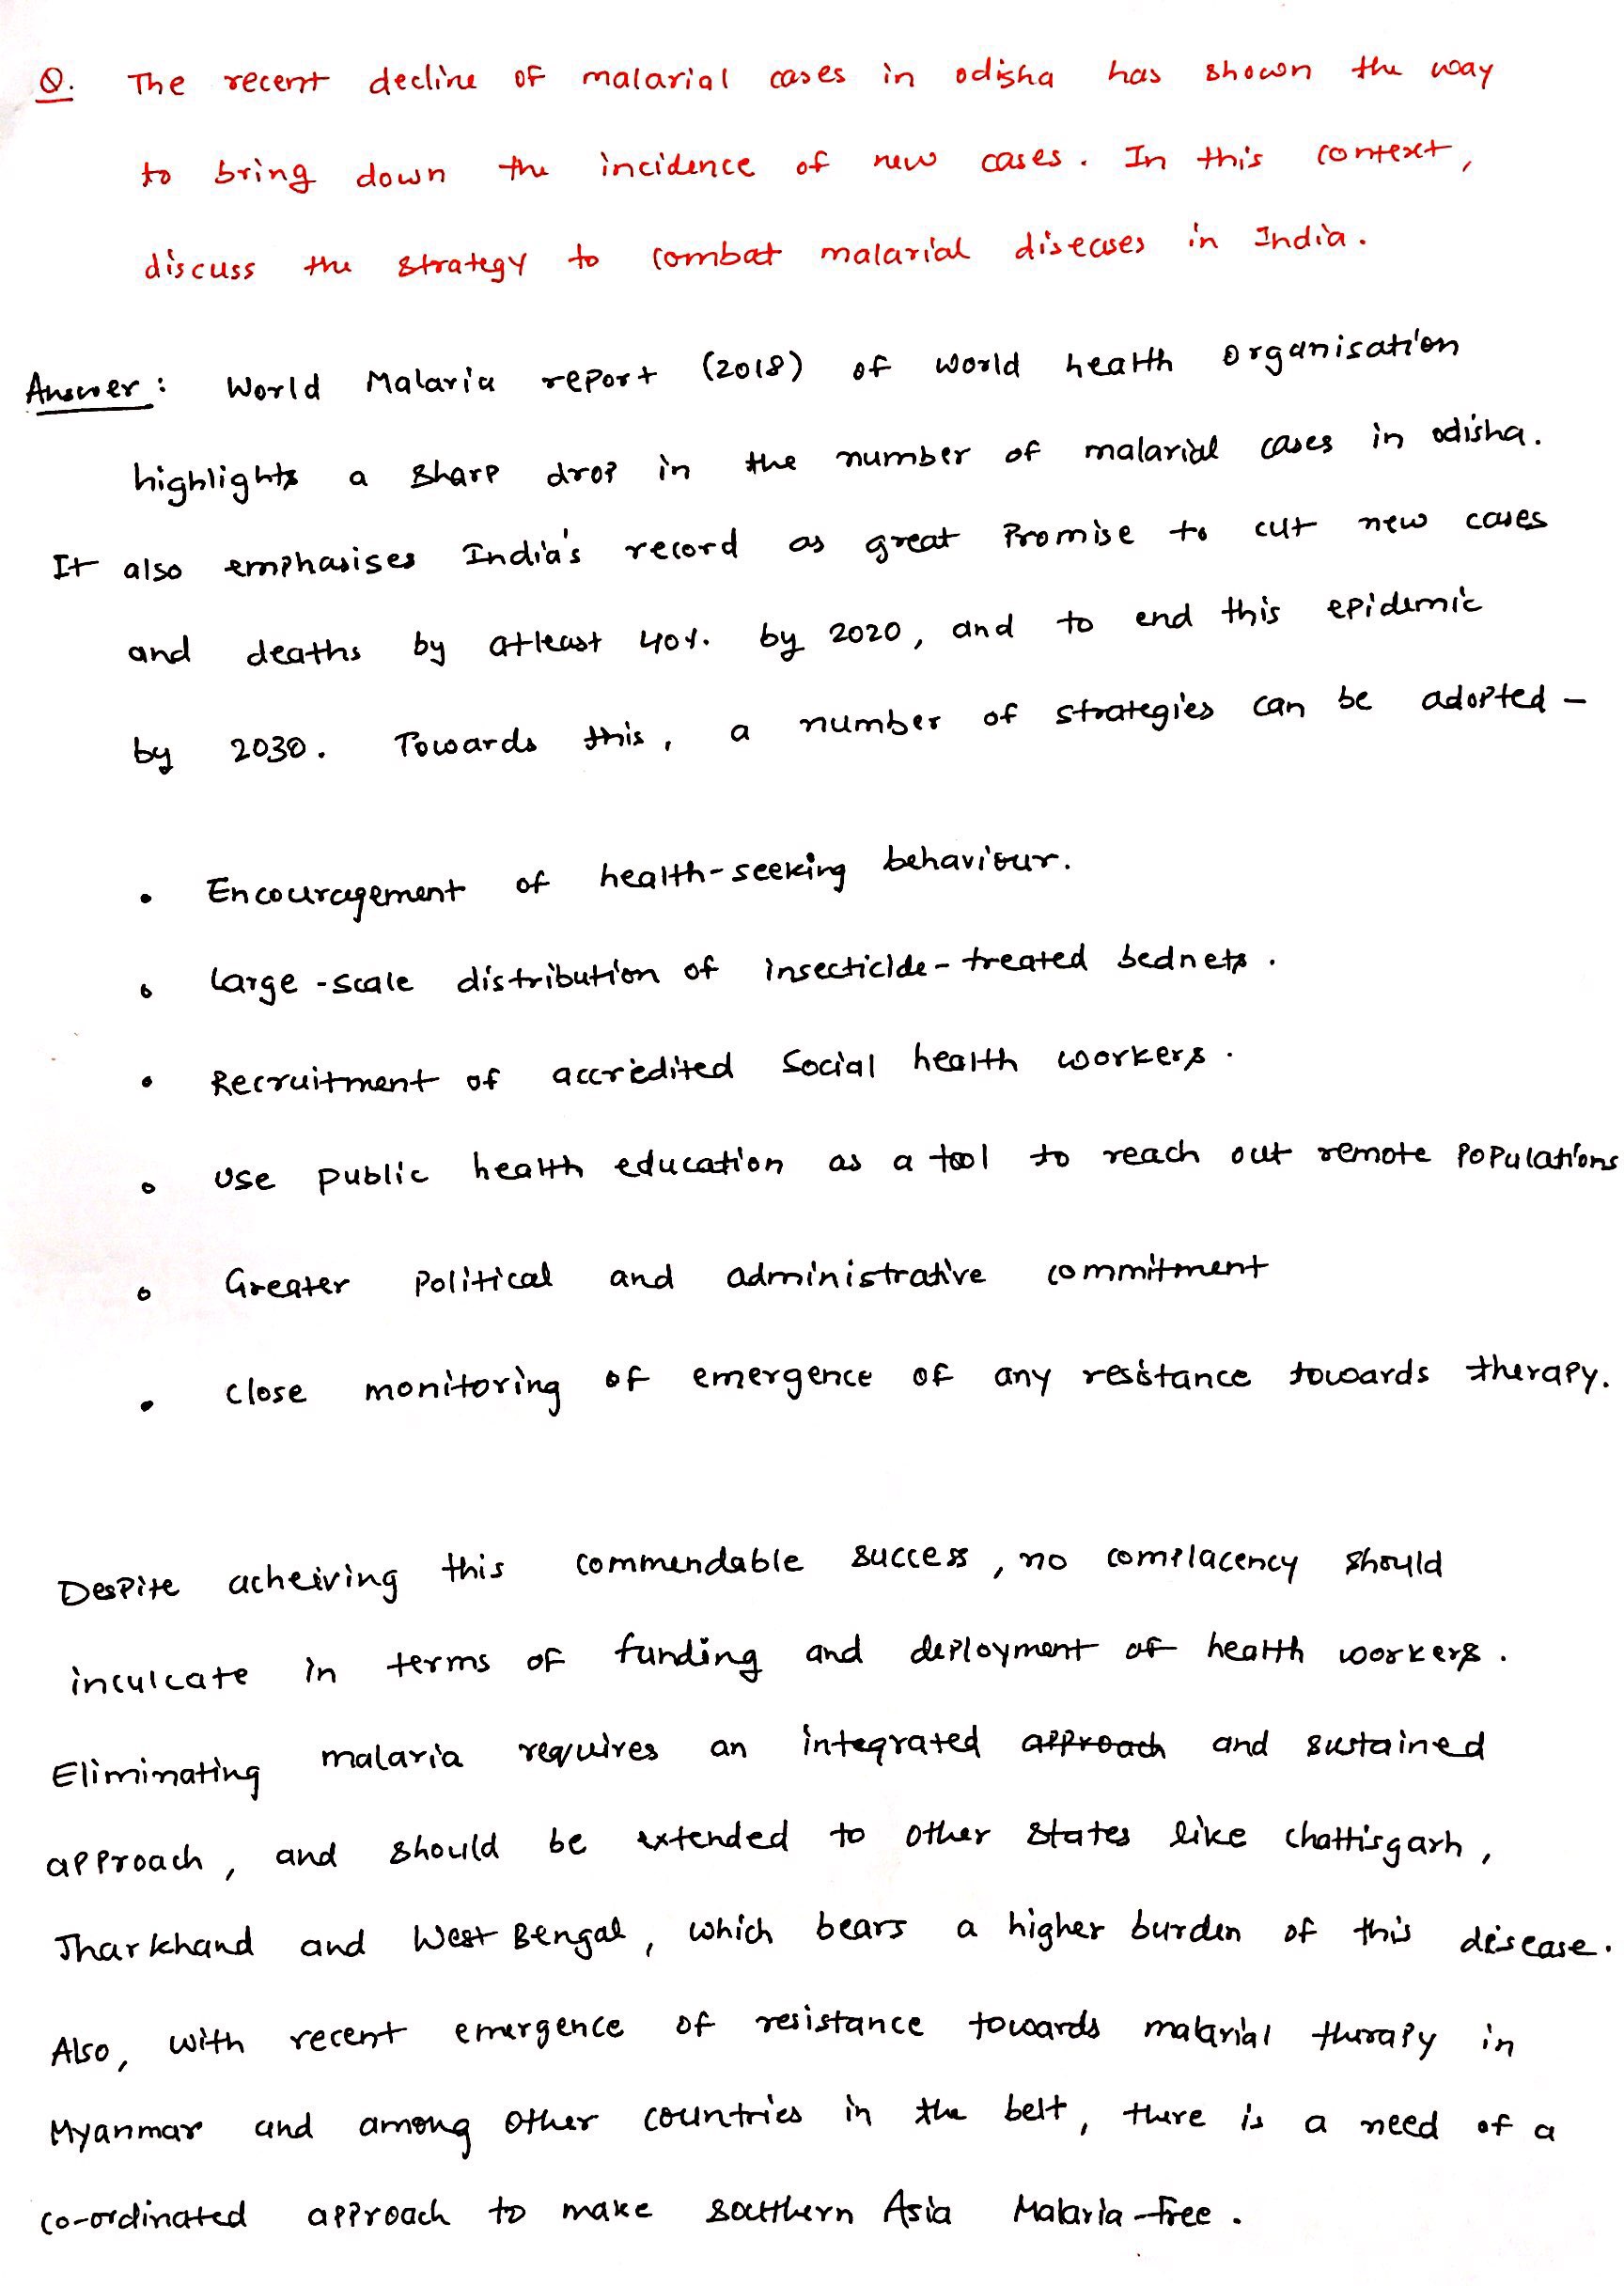 Q. The recent decline of malarial cases in odisha has shown the way
to bring down the incidence of new cases. In this context,
discuss the strategy to combat malarial diseases in India.
Answer: World Malaria report (2018) of world health organisation
highlights a sharp drop in the number of malarial cases in odisha.
It also emphasises India's record as great promise to cut new cases
and deaths by atleast 40%. by 2020, and to end this epidemic
by 2030. Towards this, a number of strategies can be adopted -
• Encouragement of health-seeking behaviour.
• large-scale distribution of insecticide-treated bednets.
• Recruitment of accredited social health workers.
• Use public health education as a tool to reach out remote populations
• Greater political and administrative commitment
• close monitoring of emergence of any resistance towards therapy.
Despite acheiving this commendable success, no complacency should
inculcate in terms of funding and deployment of health workers.
Eliminating malaria requires an integrated approach and sustained
approach, and should be extended to other states like chattisgarh,
Jharkhand and West Bengal, which bears a higher burden of this disease.
Also, with recent emergence of resistance towards malarial therapy in
Myanmar and among other countries in the belt, there is a need of a
co-ordinated approach to make southern Asia Malaria-free.